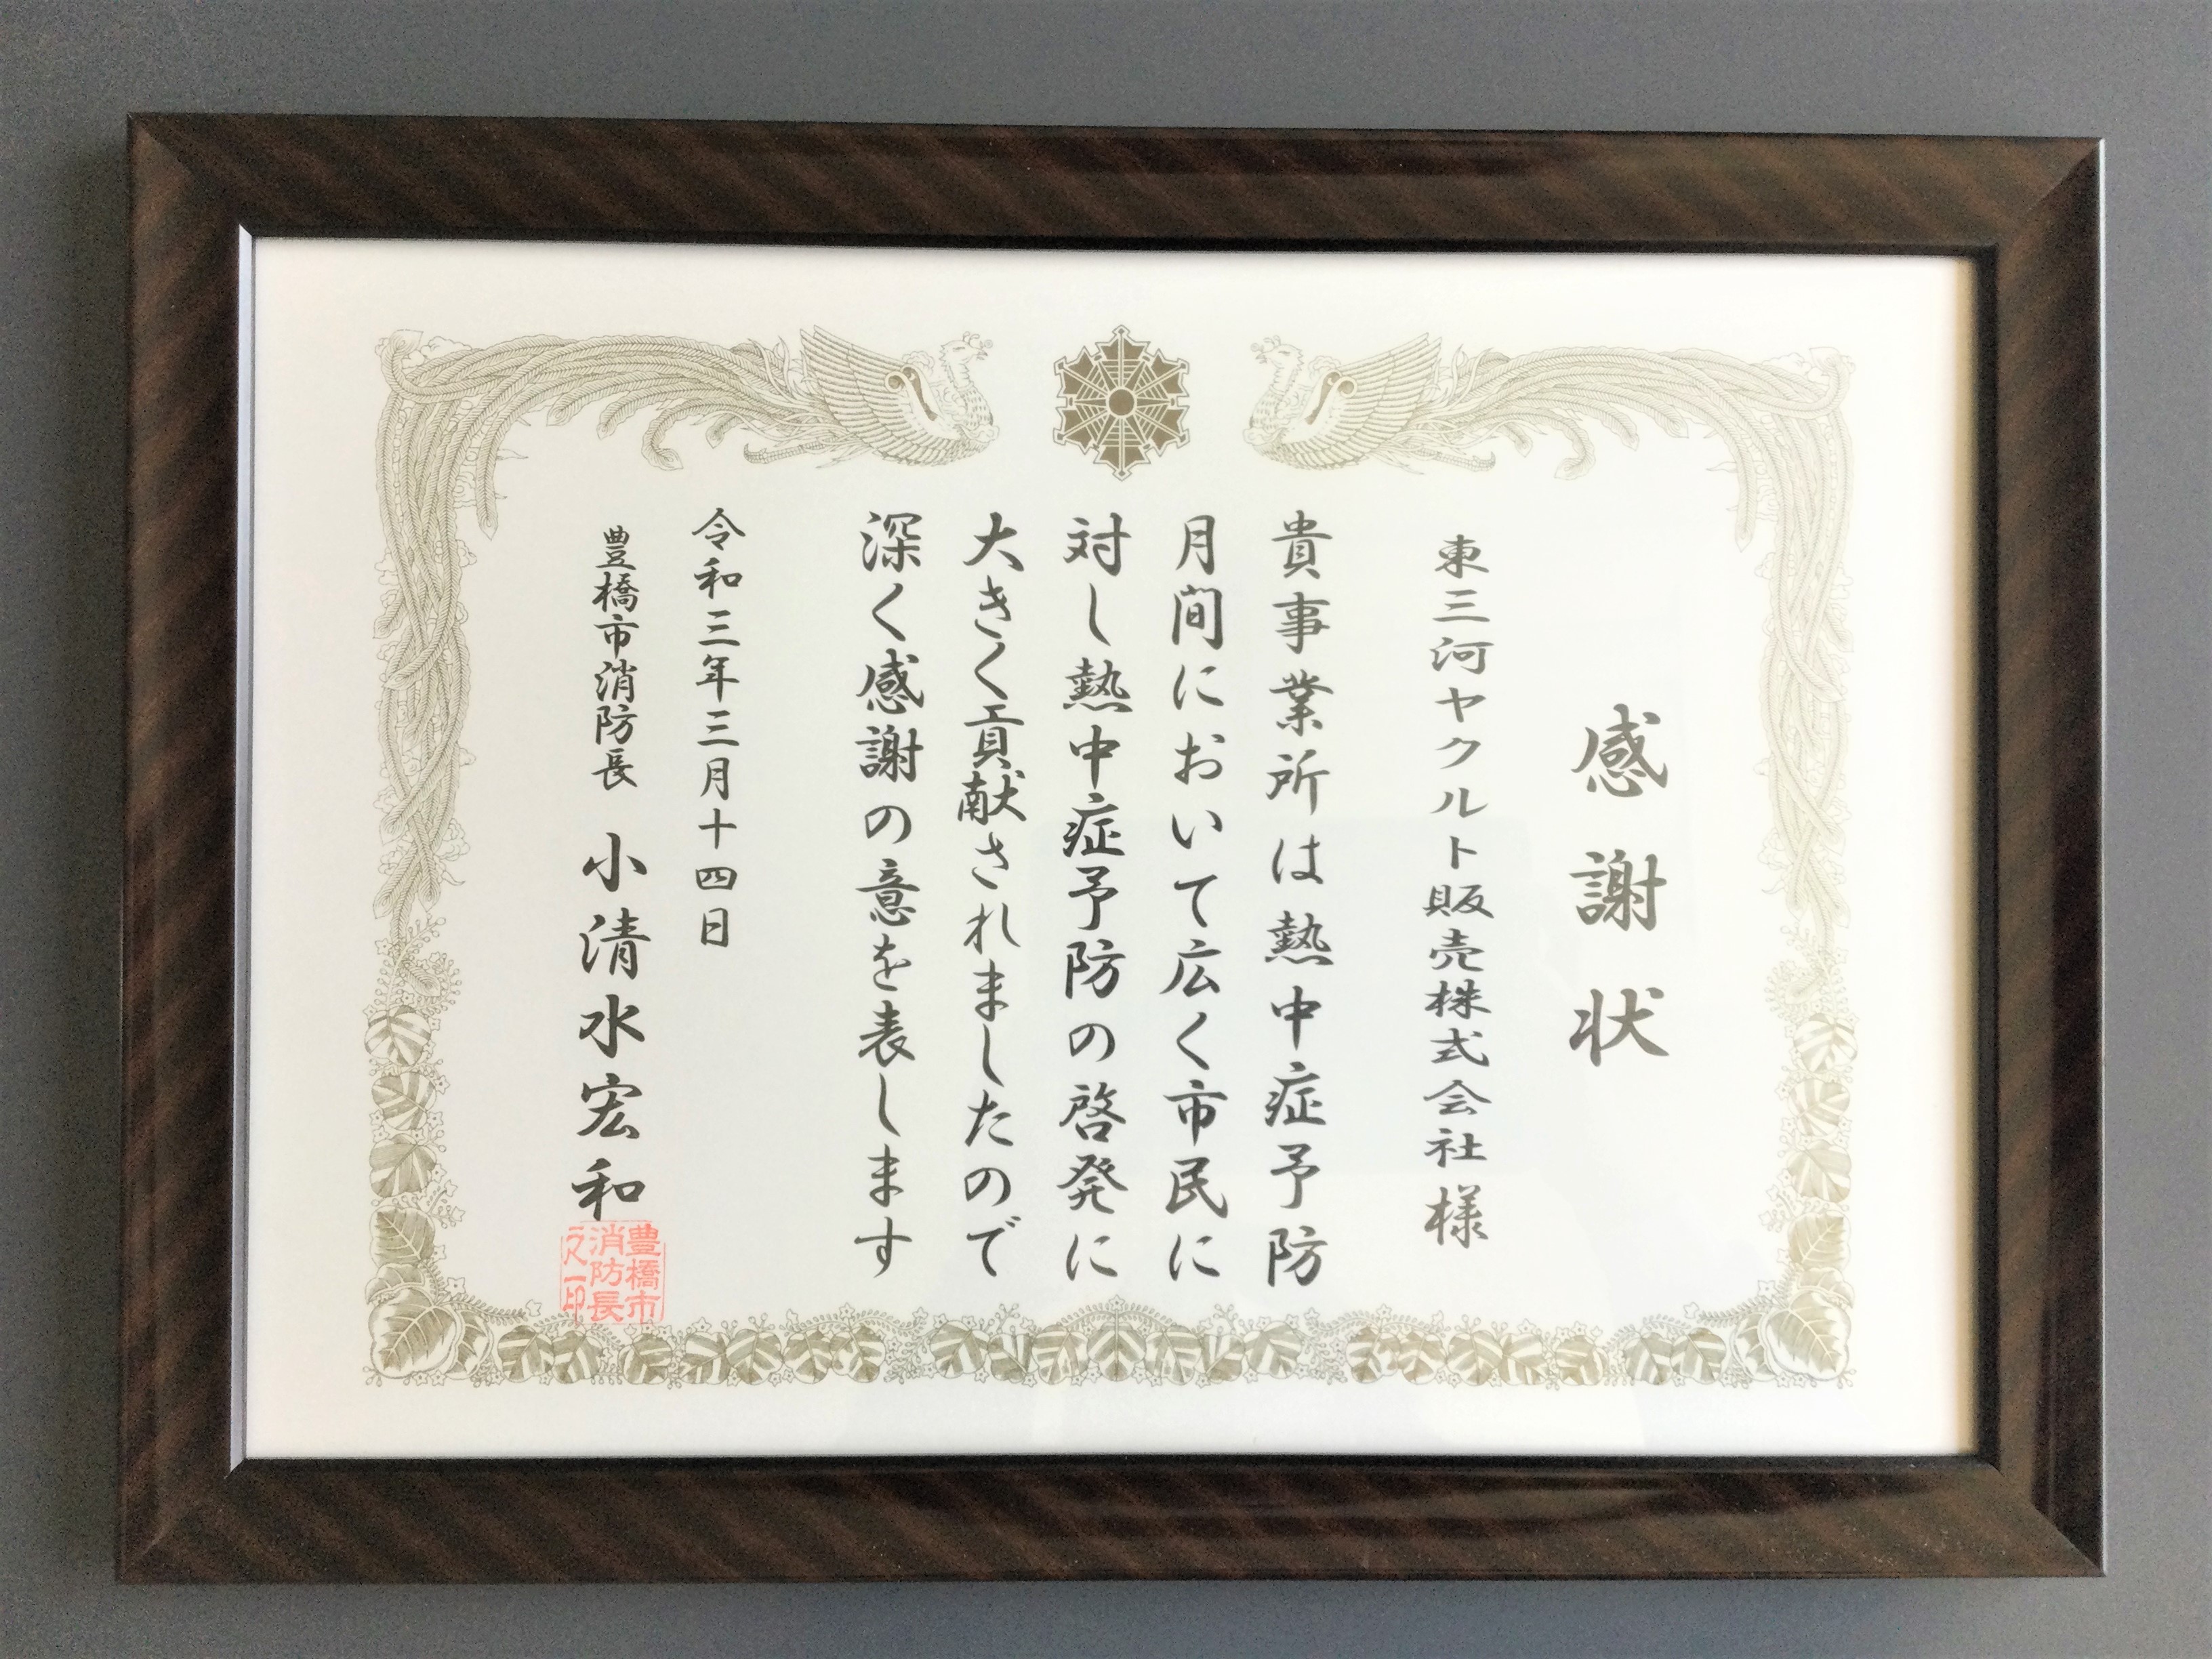 感謝状
東三河ヤクルト販売株式会社様
貴事業所は熱中症予防
月間において広く市民に
対し熱中症予防の啓発に
大きく貢献されましたので
深く感謝の意を表します
令和三年三月十四日
豊橋市消防長 小清水宏和
豊橋市
消防長
之印